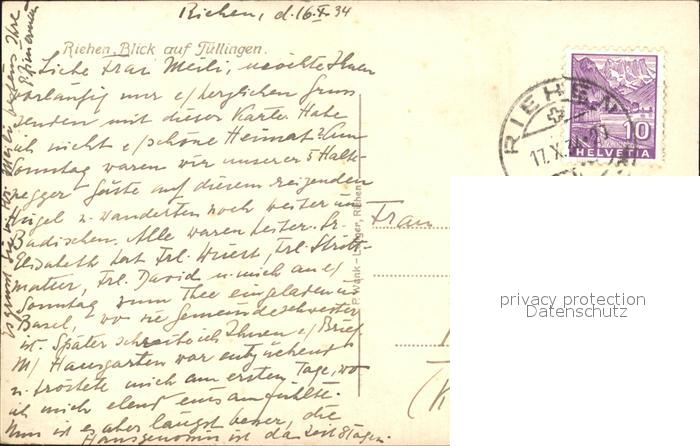 Riehen, d. 16. X. 34
Riehen, Blick auf Tüllingen.
Liebe Frau Meili, möchte Ihnen
vorläufig nur e/herzlichen Gruss
senden mit dieser Karte. Habe
ich nicht e/schöne Heimat? Am
Sonntag waren wir unserer 5
Gäste auf diesem reizenden
Hügel u. wanderten noch weiter im
Badischen. Alle waren heiter. Sr.
Elisabeth hat Frl. Wüest, Frl.
Frl. David u. mich auf e/
Sonntag zum Thee eingeladen in
Basel, wo sie Gemeindeschwester
ist. Später schreibe ich Ihnen e/Brief.
M/ Hausgarten war entzückend
u. tröstete mich am ersten Tage, wo
ich mich elend einsam fühlte.
Nun ist es aber längst besser, die
Hausgenossin ist da seit 8 Tagen.
Frau
RIEHEN
17.X.34
10
HELVETIA
Riehen
privacy protection
Datenschutz